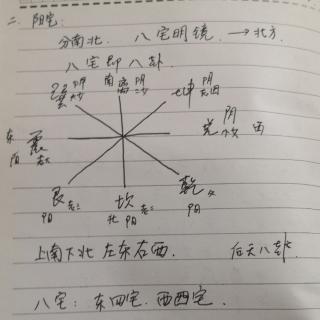 二. 阳宅:
分南北. 八宅明镜. → 北方
八宅即八卦
巽 阴 南 离 阴 坤 阴
东 震 阳 兑 阴 西
艮 阳 坎 北 阳 乾 阳
上南下北 左东右西. 后天八卦
八宅: 东四宅. 西四宅.